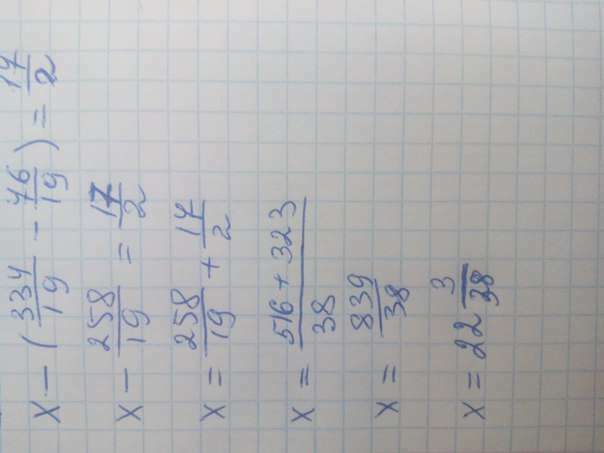 x - (334/19 - 76/19) = 17/2
x - 258/19 = 17/2
x = 258/19 + 17/2
x = (516 + 323)/38
x = 839/38
x = 22 3/38